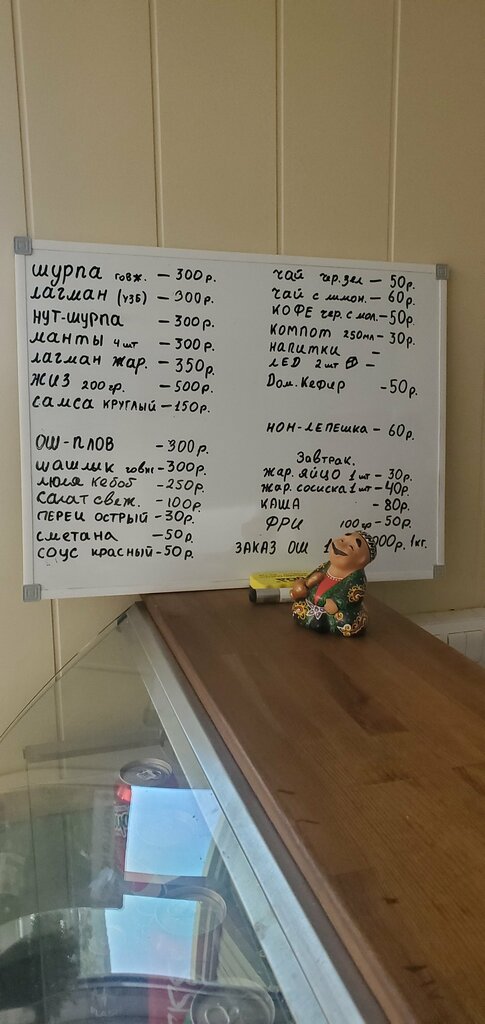 шурпа говж. - 300р.
лагман (узб) - 300р.
нут-шурпа - 300р.
манты 4 шт - 300р.
лагман жар. - 350р.
жиз 200гр. - 500р.
самса круглый - 150р.
ОШ-ПЛОВ - 300р.
шашлик говяж - 300р.
люля кебоб - 250р.
салат свеж. - 100р.
перец острый - 30р.
сметана - 50р.
соус красный - 50р.
чай чер.зел - 50р.
чай с лимон. - 60р.
кофе чер. с мол. - 50р.
компот 250мл - 30р.
напитки -
лЕD 2 шт -
Дом. Кефир - 50р.
нон-лепешка - 60р.
Завтрак.
жар. яйцо 1 шт - 30р.
жар. сосиска 1 шт - 40р.
каша - 80р.
ФРИ 100гр - 50р.
ЗАКАЗ ОШ 1кг.